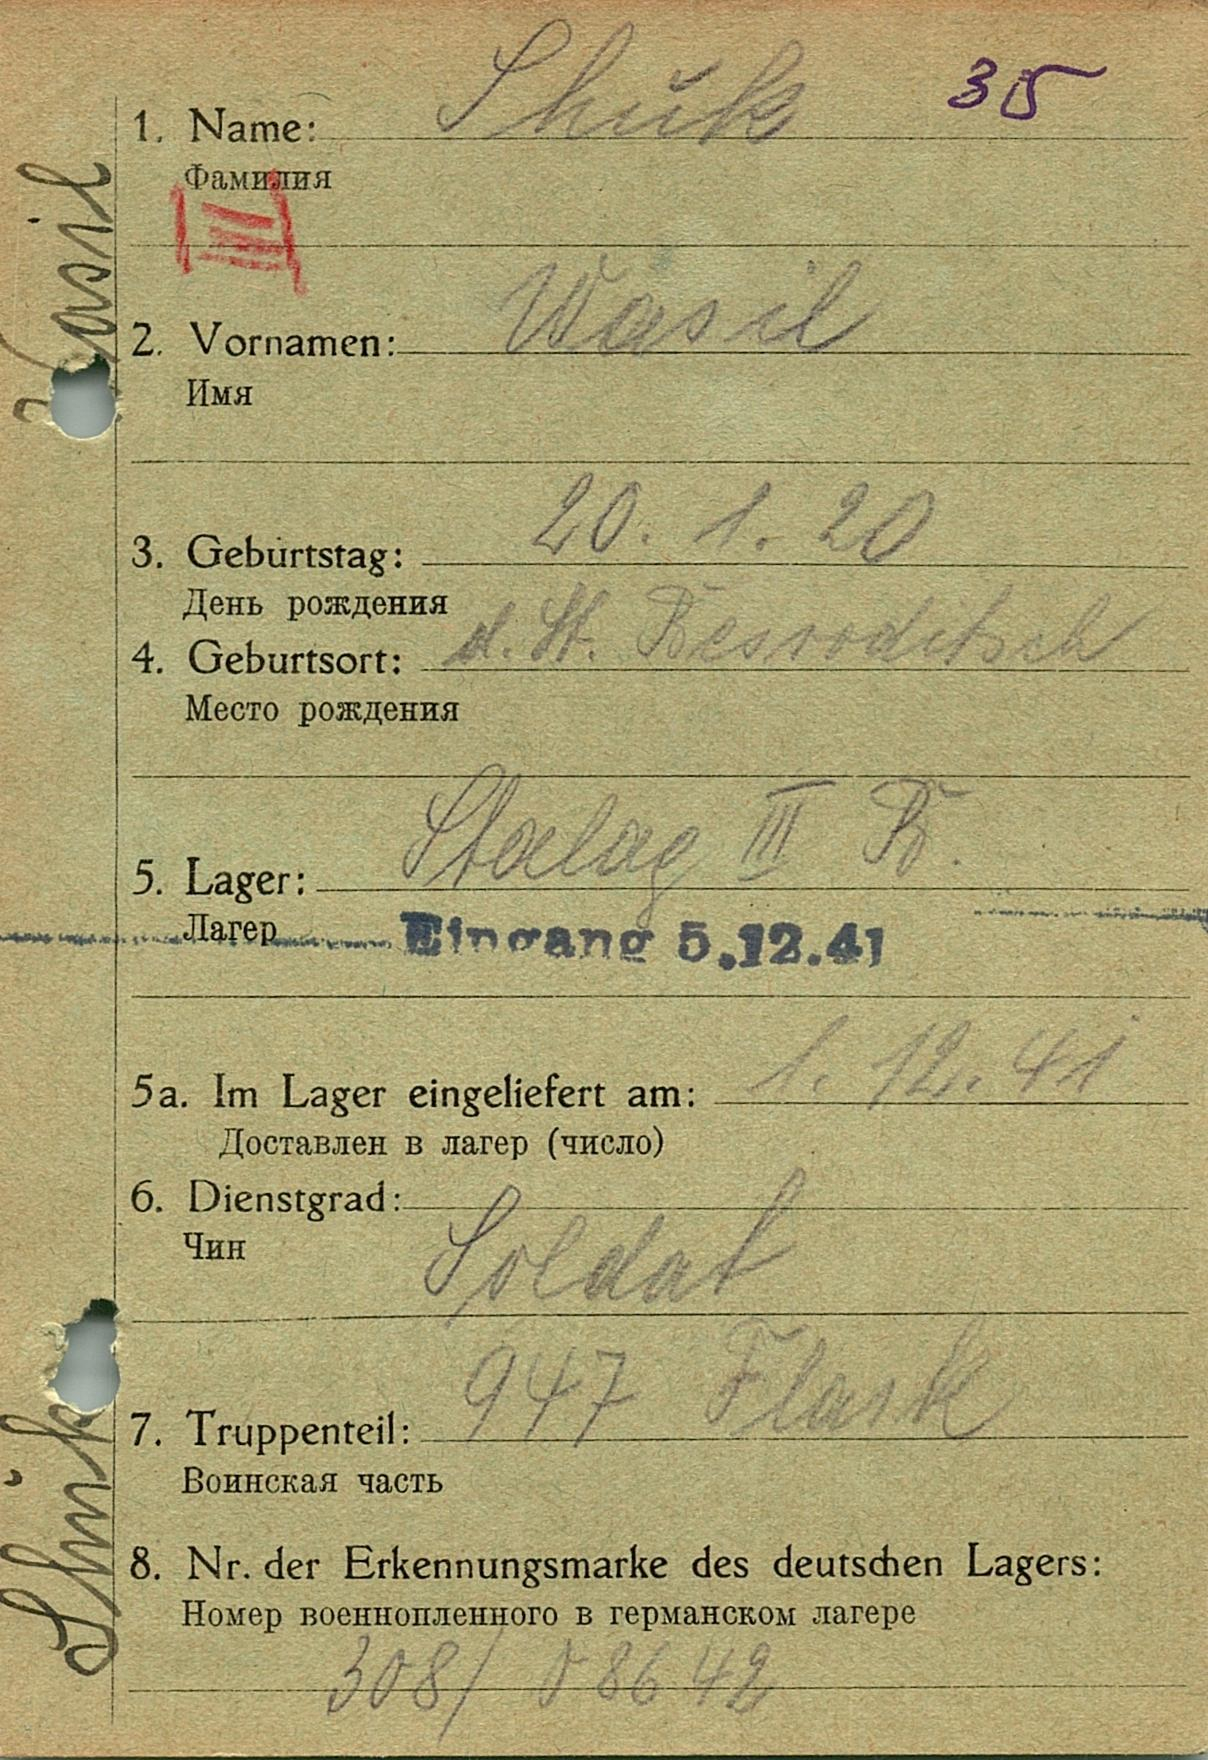 35
1. Name: Shuk
Фамилия
III
2. Vornamen: Wasil
Имя
3. Geburtstag: 20. 1. 20
День рождения
4. Geburtsort: d. St. Besroditsch
Место рождения
5. Lager: Stalag III B.
Лагер
Eingang 5.12.41
5a. Im Lager eingeliefert am: 1. 12. 41
Доставлен в лагер (число)
6. Dienstgrad: Soldat
Чин
7. Truppenteil: 947 Flak
Воинская часть
8. Nr. der Erkennungsmarke des deutschen Lagers:
Номер военнопленного в германском лагере
308/ 08642
Shuk Wasil